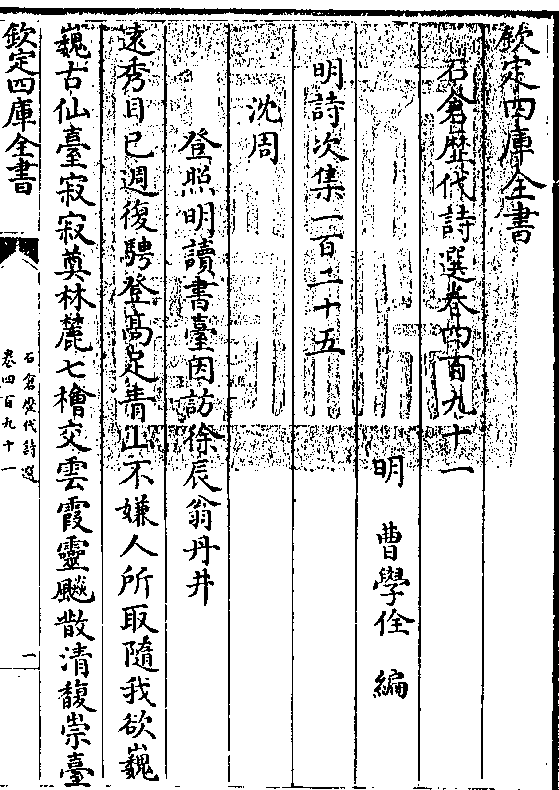 欽定四庫全書
石倉歴代詩選卷四百九十一
明 曹學佺 編
明詩次集一百二十五
沈周
登照明讀書臺因訪徐辰翁丹井
遠秀目已週復騁登高足青山不嫌人所取隨我欲巍
巍古仙臺寂寂奠林麓七檜交雲霞靈飈散清馥崇臺
欽定四庫全書
石倉歴代詩選
卷四百九十一
一